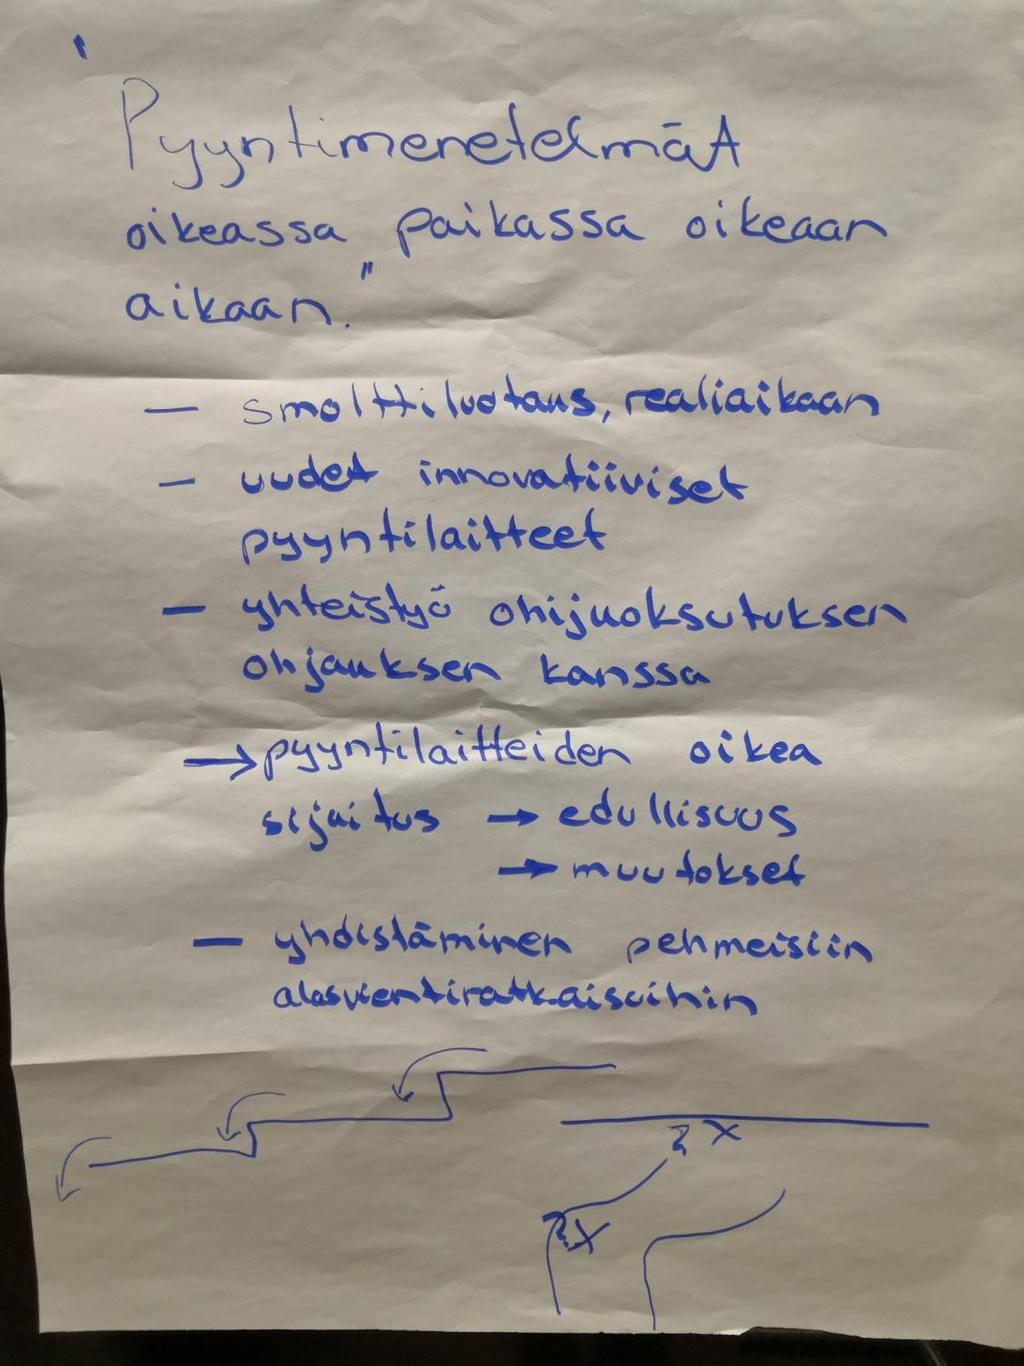 Pyyntimenetelmät
oikeassa paikassa oikeaan
aikaan."
— smolttiluotaus, realiaikaan
— uudet innovatiiviset
pyyntilaitteet
— yhteistyö ohijuoksutuksen
ohjauksen kanssa
→ pyyntilaitteiden oikea
sijaitus → edullisuus
→ muutokset
— yhdistäminen pehmeisiin
alasvientiratkaisuihin
? X
? X